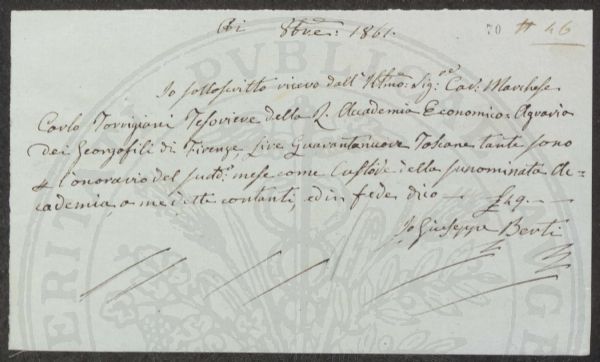 Adi 8bre: 1861.
70 # 46
Io sottoscritto ricevo dall' Illmo: Sigre Cav. Marchese
Carlo Torrigiani Tesoriere della R. Accademia Economico: Agraria
dei Georgofili di Firenze, Lire Quarantanove Toscane tante sono
l'onorario del sudd: mese come Custode della sunominata Ac=
cademia, a me detti contanti, ed in fede dico £ 49.—
Io Giuseppe Berti